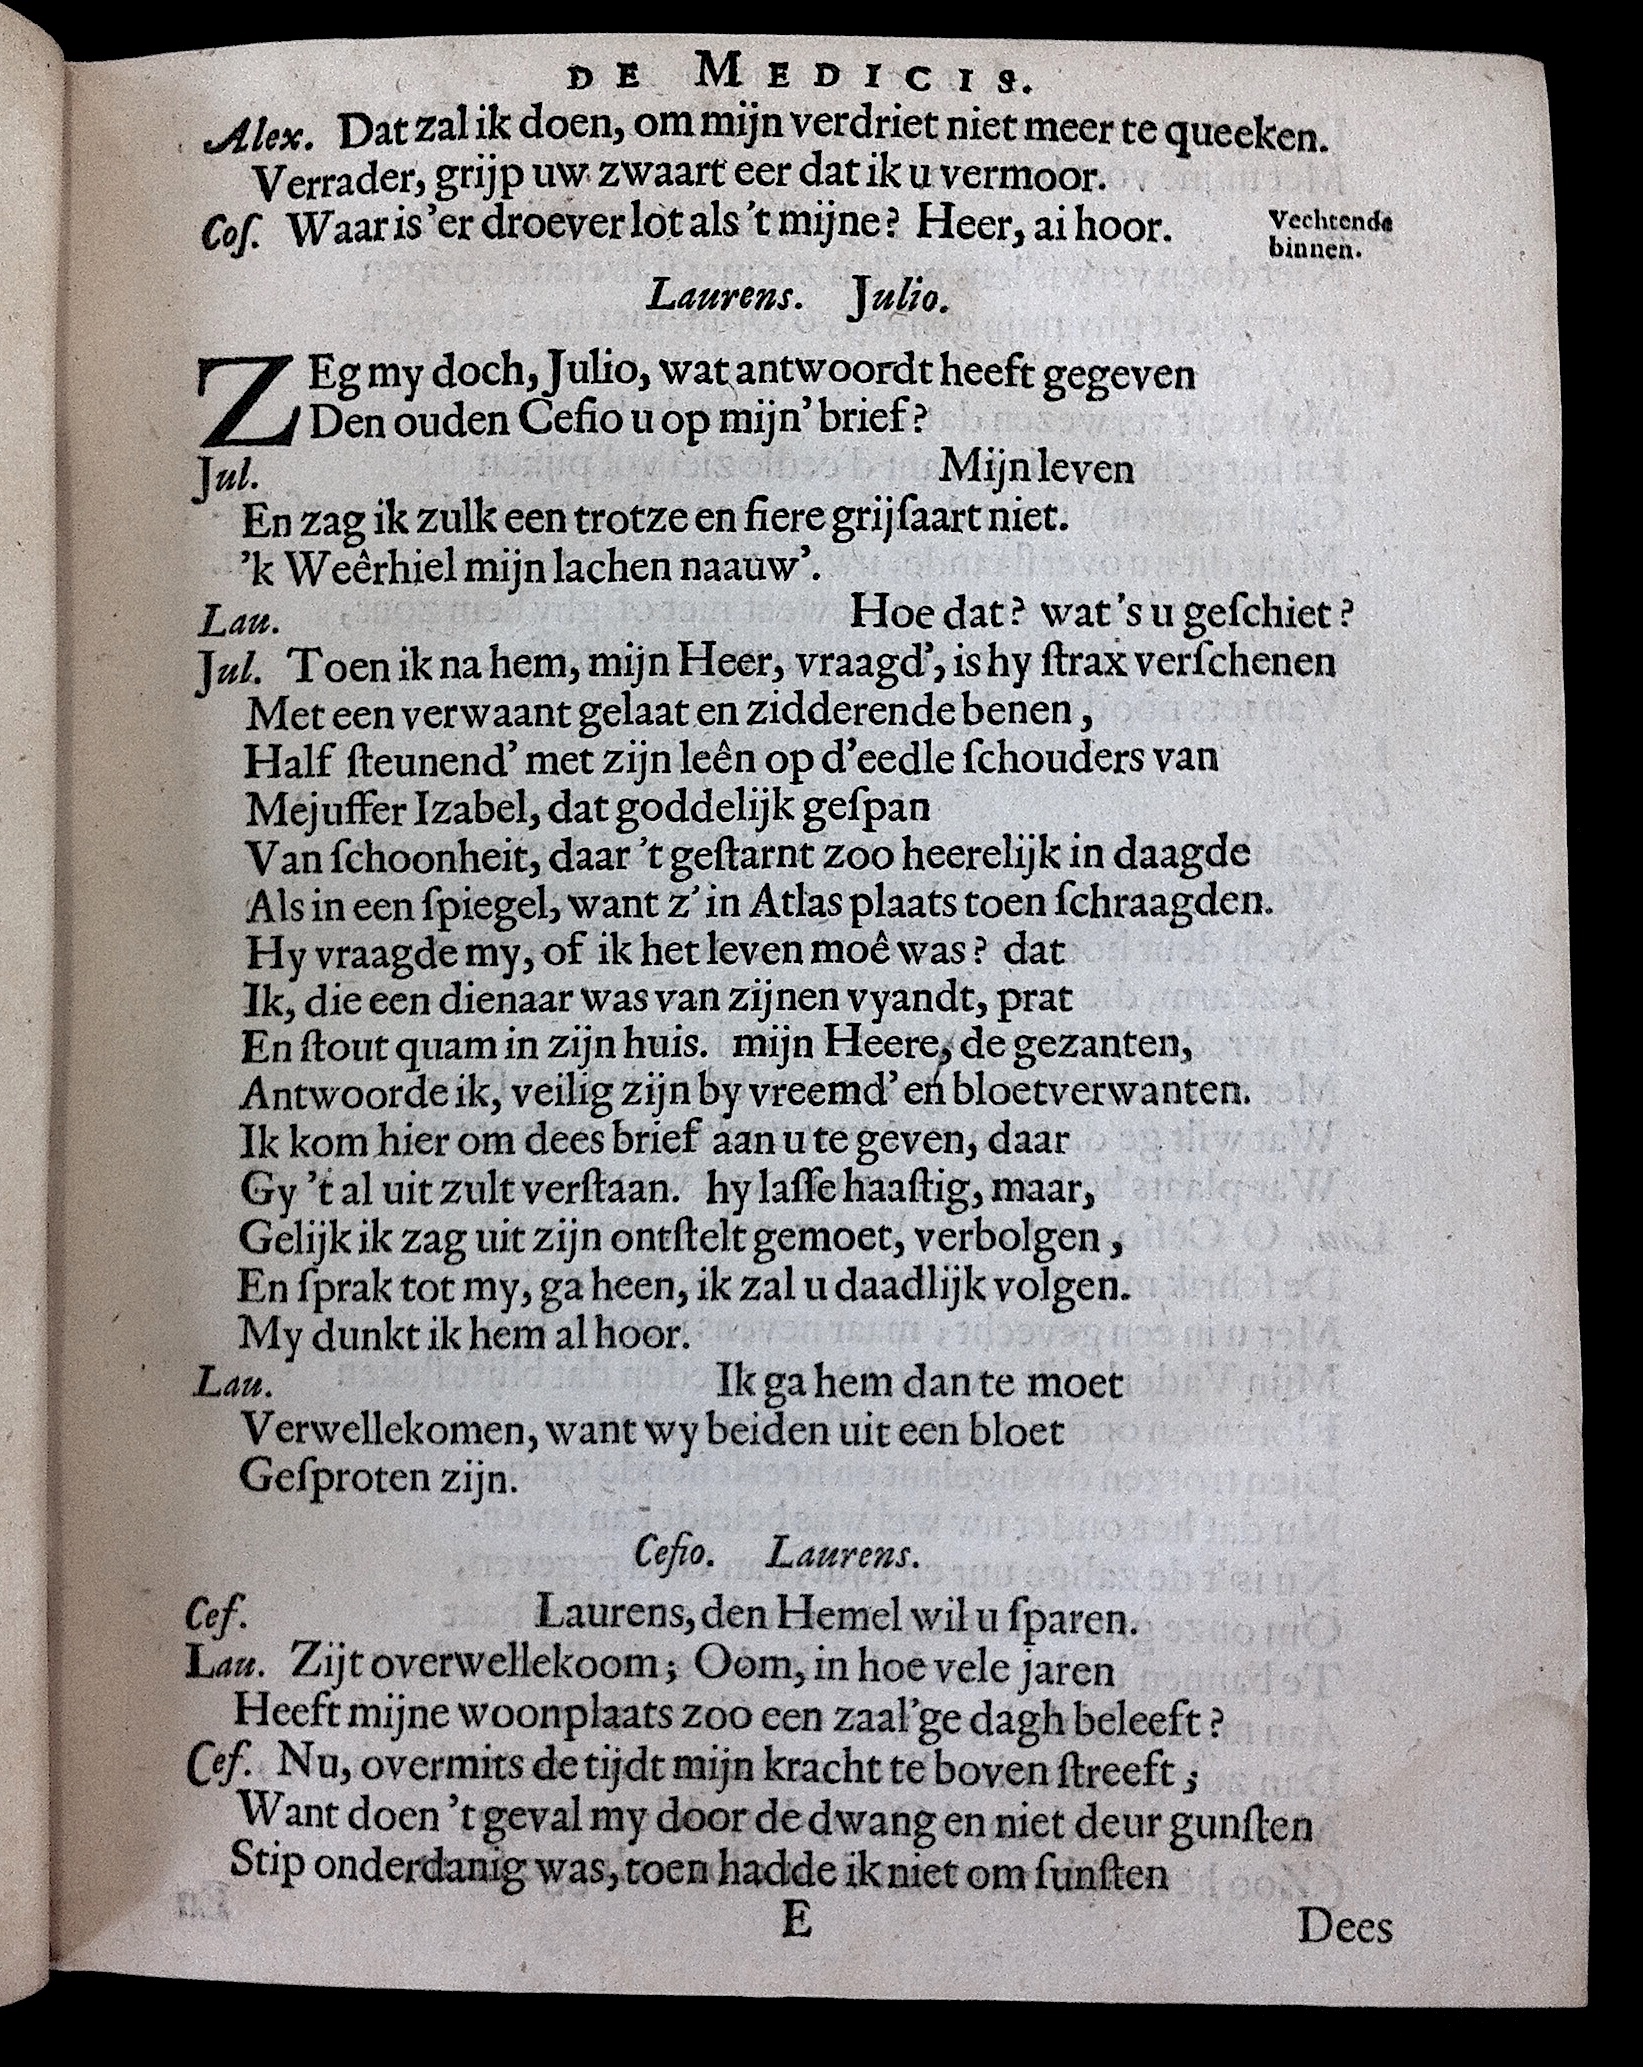 DE MEDICIS.
Alex. Dat zal ik doen, om mijn verdriet niet meer te queeken.
Verrader, grijp uw zwaart eer dat ik u vermoor.
Coſ. Waar is 'er droever lot als 't mijne? Heer, ai hoor. Vechtende
binnen.
Laurens. Julio.
ZEg my doch, Julio, wat antwoordt heeft gegeven
Den ouden Ceſio u op mijn' brief?
Jul. Mijn leven
En zag ik zulk een trotze en fiere grijſaart niet.
'k Weêrhiel mijn lachen naauw'.
Lau. Hoe dat? wat 's u geſchiet?
Jul. Toen ik na hem, mijn Heer, vraagd', is hy ſtrax verſchenen
Met een verwaant gelaat en zidderende benen,
Half ſteunend' met zijn leên op d'eedle ſchouders van
Mejuffer Izabel, dat goddelijk geſpan
Van ſchoonheit, daar 't geſtarnt zoo heerelijk in daagde
Als in een ſpiegel, want z' in Atlas plaats toen ſchraagden.
Hy vraagde my, of ik het leven moê was? dat
Ik, die een dienaar was van zijnen vyandt, prat
En ſtout quam in zijn huis. mijn Heere, de gezanten,
Antwoorde ik, veilig zijn by vreemd' en bloetverwanten.
Ik kom hier om dees brief aan u te geven, daar
Gy 't al uit zult verſtaan. hy laſſe haaſtig, maar,
Gelijk ik zag uit zijn ontſtelt gemoet, verbolgen,
En ſprak tot my, ga heen, ik zal u daadlijk volgen.
My dunkt ik hem al hoor.
Lau. Ik ga hem dan te moet
Verwellekomen, want wy beiden uit een bloet
Geſproten zijn.
Ceſio. Laurens.
Ceſ. Laurens, den Hemel wil u ſparen.
Lau. Zijt overwellekoom; Oom, in hoe vele jaren
Heeft mijne woonplaats zoo een zaal'ge dagh beleeft?
Ceſ. Nu, overmits de tijdt mijn kracht te boven ſtreeft;
Want doen 't geval my door de dwang en niet deur gunſten
Stip onderdanig was, toen hadde ik niet om ſunſten
E Dees